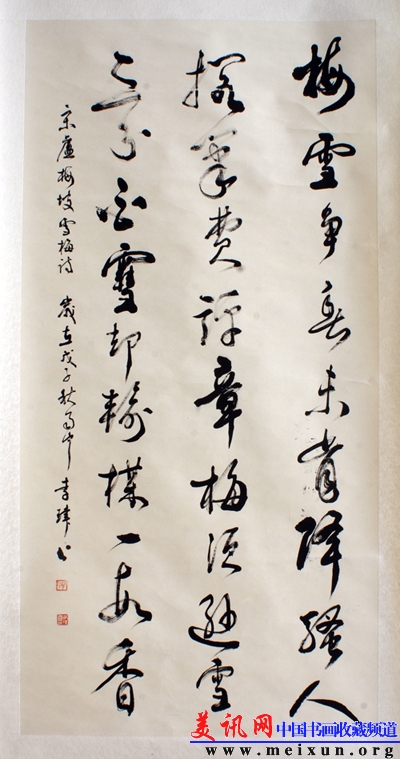 梅雪争春未肯降騷人
擱筆費評章梅须遜雪
三分白雪却輸梅一段香
宋盧梅坡雪梅诗 歲在戊子秋
美讯网 中国书画收藏频道
www.meixun.org